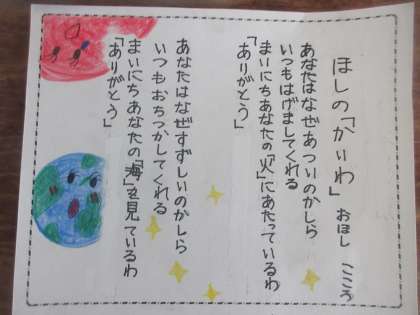 ほしの「かいわ」 おほし こころ
あなたはなぜあついのかしら
いつもはげましてくれる
まいにちあなたの「火」にあたっているわ
「ありがとう」
あなたはなぜすずしいのかしら
いつもおちつかしてくれる
まいにちあなたの「海」を見ているわ
「ありがとう」